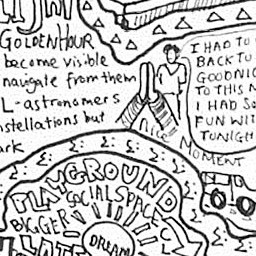 GOLDEN HOUR
become visible
navigate from them
L-astronomers
nstellations but
ark
I HAD TO
BACK TO
GOODNIG
TO THIS N
I HAD SO
FUN WIT
TONIGH
MOMENT
Nice
PLAYGROUND
SOCIAL SPACE
BIGGER
LATE
DREAM